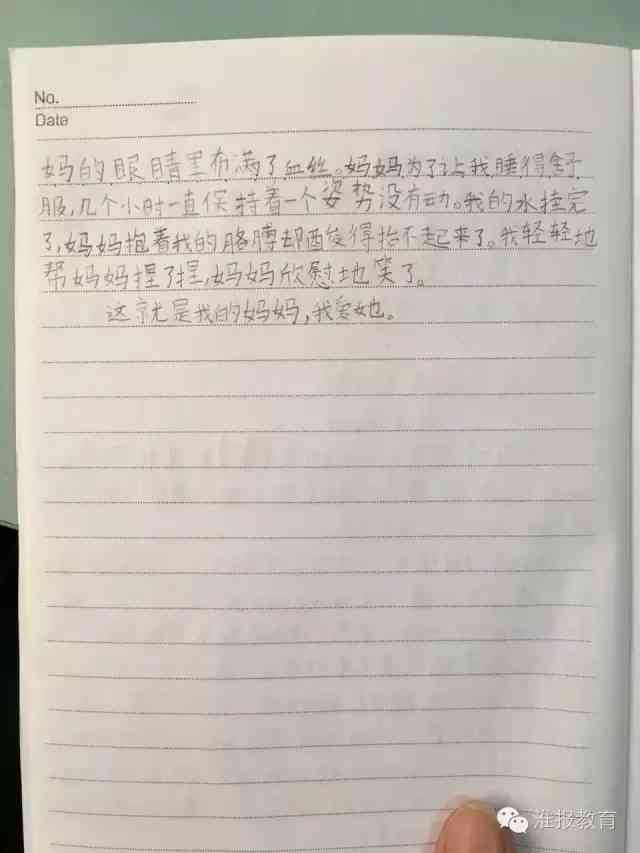 No.
Date
妈的眼睛里布满了血丝。妈妈为了让我睡得舒
服,几个小时一直保持着一个姿势没有动。我的水挂完
了,妈妈抱着我的胳膊却酸得抬不起来了。我轻轻地
帮妈妈捏了捏,妈妈欣慰地笑了。
这就是我的妈妈,我爱她。
淮报教育